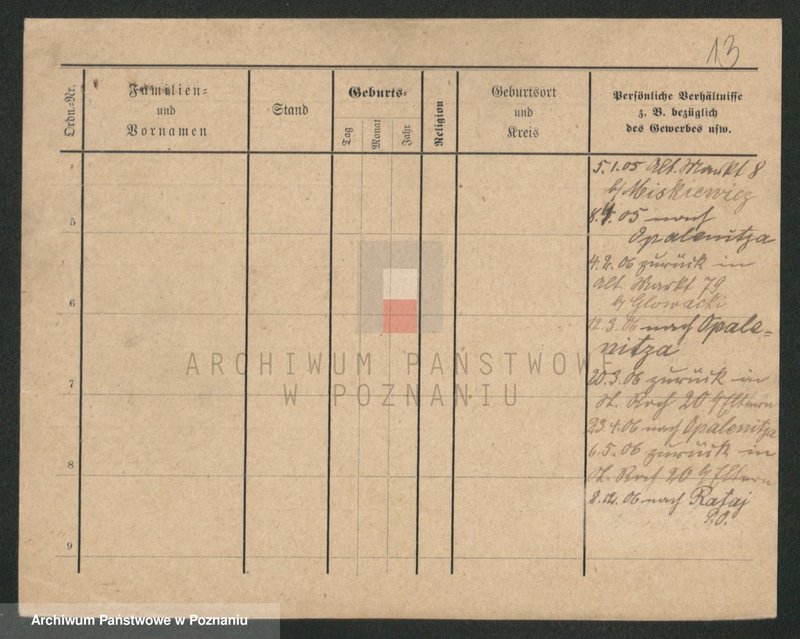 13
Ordn.-Nr.
Familien-
und
Vornamen
Stand
Geburts-
Tag
Monat
Jahr
Religion
Geburtsort
und
Kreis
Persönliche Verhältnisse
z. B. bezüglich
des Gewerbes usw.
5.1.05 Alt. Markt 8
b/Miskiewicz
8.4.05 nach
Opalenitza
4.2.06 zurück in
Alt. Markt 79
b/Glowacki
12.3.06 nach Opale=
nitza
20.3.06 zurück in
St. Roch 20 b/Eltern
23.4.06 nach Opalenitza
6.5.06 zurück in
St. Roch 20 b/Eltern
8.12.06 nach Rataj
P.O.
5
6
7
8
9
ARCHIWUM PAŃSTWOWE
W POZNANIU
Archiwum Państwowe w Poznaniu